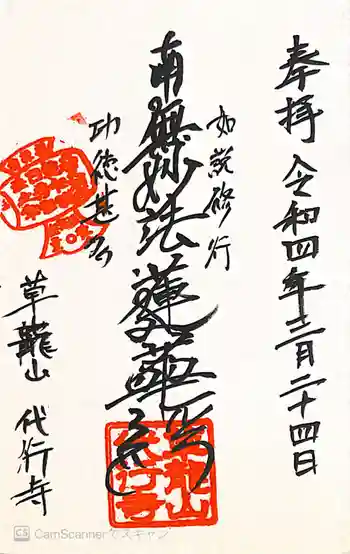 奉拝 令和四年十二月二十四日
如説修行
南無妙法蓮華経
功徳甚多
草龍山 代行寺
草龍山
代行寺
CamScanner でスキャン